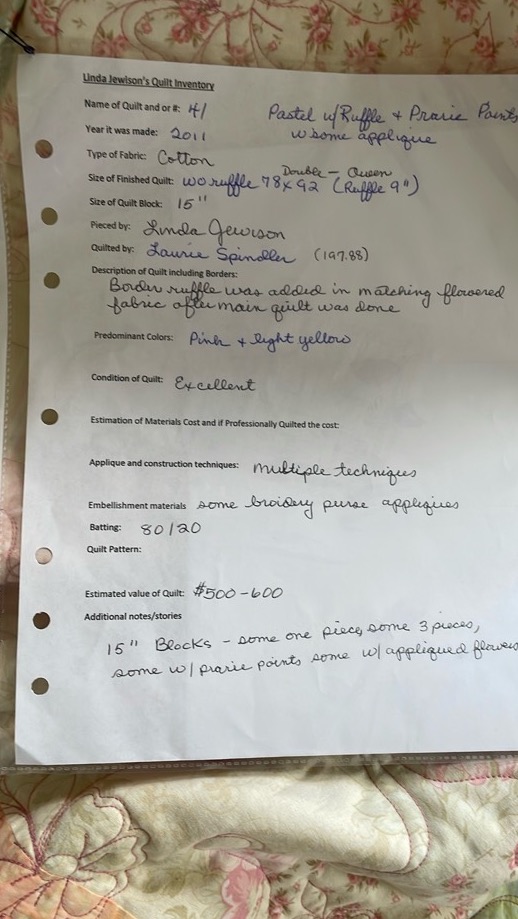 Linda Jewison's Quilt Inventory
Name of Quilt and or #: 41 Pastel w/Ruffle + Prarie Points
Year it was made: 2011 w some applique
Type of Fabric: Cotton
Double - Queen
Size of Finished Quilt: wo ruffle 78x92 (Ruffle 9")
Size of Quilt Block: 15"
Pieced by: Linda Jewison
Quilted by: Laurie Spindler (197.88)
Description of Quilt including Borders:
Border ruffle was added in matching flowered
fabric after main quilt was done
Predominant Colors: Pink + light yellow
Condition of Quilt: Excellent
Estimation of Materials Cost and if Professionally Quilted the cost:
Applique and construction techniques: multiple techniques
Embellishment materials some broidery purse appliques
Batting: 80/20
Quilt Pattern:
Estimated value of Quilt: $500-600
Additional notes/stories
15" Blocks - some one piece, some 3 pieces,
some w/ prarie points some w/ appliqued flowers